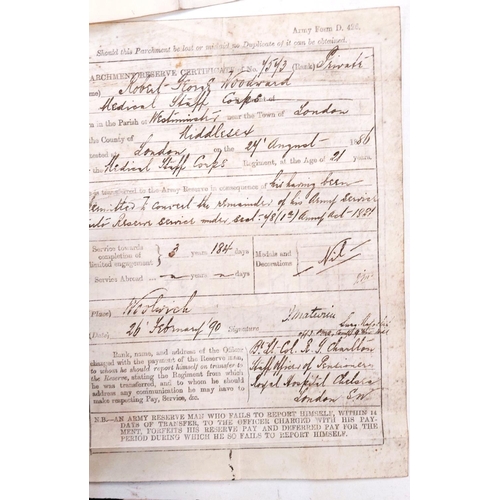 Army Form D. 422.
Should this Parchment be lost or mislaid no Duplicate of it can be obtained.
ARCHMENT RESERVE CERTIFICATE No. 7573 (Rank) Private
ame) Robert George Woodward
Medical Staff Corps
rn in the Parish of Westminster near the Town of London
the County of Middlesex
tested at London on the 27 August 1886
the Medical Staff Corps Regiment, at the Age of 21 years.
is transferred to the Army Reserve in consequence of his having been
ermitted to convert the remainder of his Army Service
into Reserve service under sect. 78 (1a) Army Act 1881
Service towards completion of limited engagement } 3 years 184 days
Medals and Decorations } Nil
Service Abroad years days
Place) Woolwich
(Date) 26 February 90 Signature
Rank, name, and address of the Officer
charged with the payment of the Reserve man,
to whom he should report himself on transfer to
the Reserve, stating the Regiment from which
he was transferred, and to whom he should
address any communication he may have to
make respecting Pay, Service, &c.
Bt. Lt. Col. R. G. Charlton
Staff Officer of Pensioners
Royal Hospital Chelsea
London S.W.
N.B.—AN ARMY RESERVE MAN WHO FAILS TO REPORT HIMSELF, WITHIN 14
DAYS OF TRANSFER, TO THE OFFICER CHARGED WITH HIS PAY-
MENT, FORFEITS HIS RESERVE PAY AND DEFERRED PAY FOR THE
PERIOD DURING WHICH HE SO FAILS TO REPORT HIMSELF.